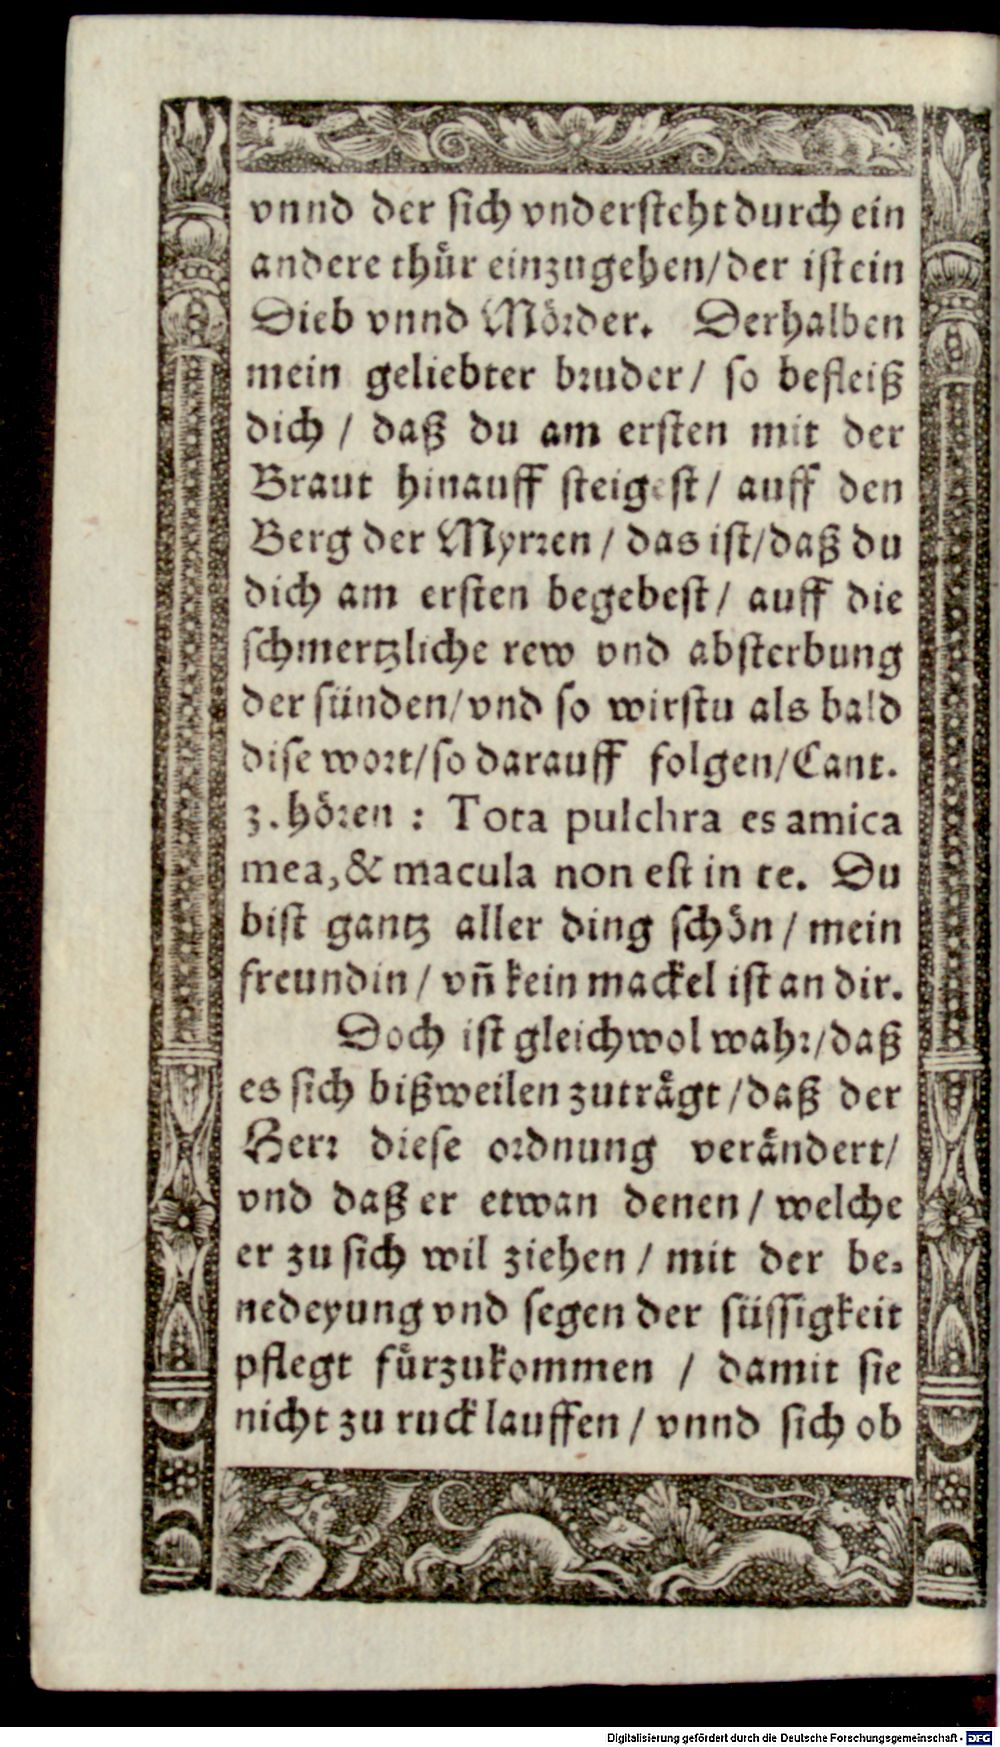 vnnd der sich vndersteht durch ein
andere thür einzugehen/der ist ein
Dieb vnnd Mörder. Derhalben
mein geliebter bruder/ so befleiß
dich / daß du am ersten mit der
Braut hinauff steigest/ auff den
Berg der Myrren / das ist/daß du
dich am ersten begebest/ auff die
schmertzliche rew vnd absterbung
der sünden/vnd so wirstu als bald
dise wort/so darauff folgen/Cant.
3. hören : Tota pulchra es amica
mea, & macula non est in te. Du
bist gantz aller ding schön / mein
freundin / vñ kein mackel ist an dir.
Doch ist gleichwol wahr/daß
es sich bißweilen zuträgt /daß der
Herr diese ordnung verändert/
vnd daß er etwan denen / welche
er zu sich wil ziehen / mit der be⸗
nedeyung vnd segen der süssigkeit
pflegt fürzukommen / damit sie
nicht zu ruck lauffen / vnnd sich ob
Digitalisierung gefördert durch die Deutsche Forschungsgemeinschaft - DFG